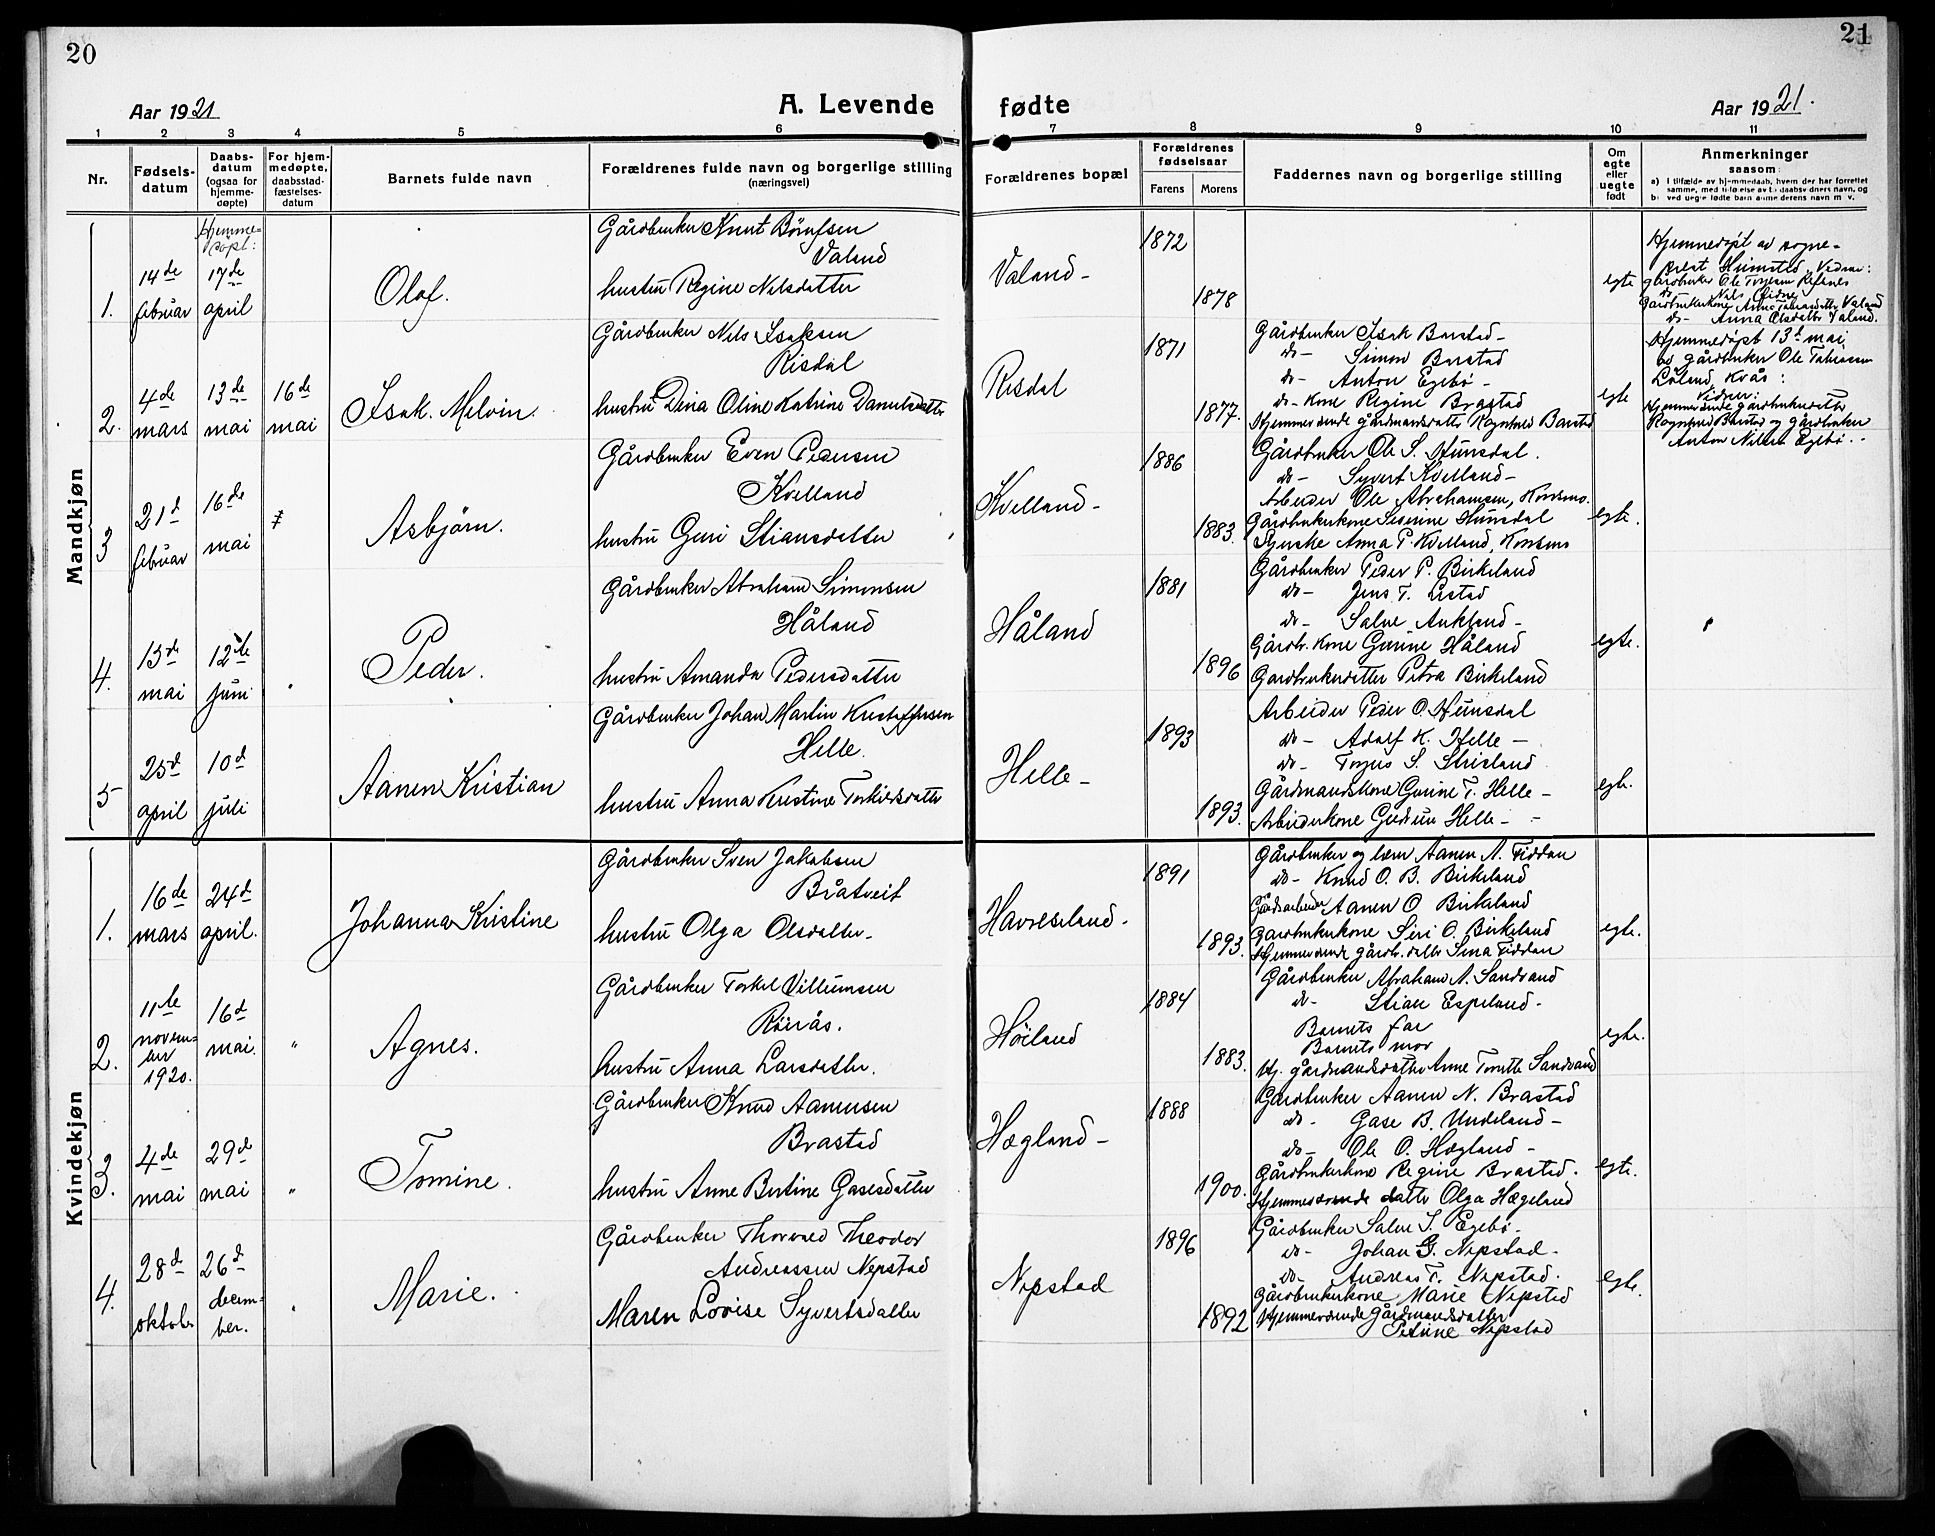 20
21
Aar 1921
A. Levende fødte
Aar 1921.
1 2 3 4 5 6 7 8 9 10 11
Nr.
Fødsels-
datum
Daabs-
datum
(ogsaa for
hjemme-
døpte)
For hjem-
medøpte,
daabsstad-
fæstelses-
datum
Barnets fulde navn
Forældrenes fulde navn og borgerlige stilling
(næringsvei)
Forældrenes bopæl
Forældrenes
fødselsaar
Farens Morens
Faddernes navn og borgerlige stilling
Om
egte
eller
uegte
født
Anmerkninger
saasom:
Mandkjøn
1.
14de
februar
Hjemme-
døpt:
17de
april
Olaf.
Gårdbruker Knut
Valand
hustru Regine Nilsdatter
Valand-
1872
1878
egte
Hjemmedøpt av sogne-
prest
gårdbruker Ole
Anna Olsdatter Valand.
2.
4de
mars
13de
mai
16de
mai
Isak Melvin.
Gårdbruker Nils Isaksen
Risdal
hustru Dina Oline Katrine Danielsdatter
Risdal
1871
1877.
Gårdbruker Isak Barstad-
do- Simon Barstad
do- Anton Egebø-
do- Kone Regine Brastad
Hjemmeværende gårdmandsdatter Ragnhild Barstad
egte
Hjemmedøpt 13d mai
av gårdbruker Ole
Løland, Kvås:
Vidner:
Hjemmeværende gårdbrukerdatter
Ragnhild Barstad og gårdbruker
Anton Nilsen Egebø.-
3
21d
februar
16de
mai
Asbjørn.
Gårdbruker Even Pedersen
Kvelland
hustru Guri Stiansdatter
Kvelland-
1886
1883.
Gårdbruker Ole S. Hunsdal.
do- Syvert Kvelland-
Arbeider Ole Abrahamsen,
Gårdbrukerkone Severine Hunsdal
Anna P. Kvelland,
egte.
4.
13de
mai
12te
juni
Peder.
Gårdbruker Abraham Simonsen
Håland
hustru Amanda Pedersdatter
Håland
1881
1896
Gårdbruker Peder P. Birkeland
do- Jens T.
do- Salve Aukland-
Gårdbr. Kone Gurine Håland
Gårdbrukerdatter Petra Birkeland
egte.
5
25d
april
10d
juli
Aanen Kristian
Gårdbruker Johan Martin Kristoffersen
Helle.
hustru Anna Kristine Torkildsdatter
Helle-
1893
1893.
Arbeider Peder O. Hunsdal
do- Adolf K. Helle-
do- S.
Gårdmandskone Gurine T. Helle-
Arbeiderkone Gudrun Helle-
egte.
Kvindekjøn
1.
16de
mars
24d
april.
Johanna Kristine
Gårdbruker Sven Jakobsen
Bråtveit
hustru Olga Olsdatter-
Havreseland-
1891
1893.
Gårdbruker og lærer Aanen A. Fiddan
do- Knud O. B. Birkeland
Gårdsarbeider Aanen O Birkeland
Gårdbrukerkone Siri O. Birkeland
Hjemmeværende gårdbr. datter Sina Fiddan
egte.
2.
11te
novem-
ber
1920.
16d
mai.
"
Agnes.
Gårdbruker Torkel Villumsen
Røirås.
hustru Anna Larsdatter.
Høiland
1884
1883.
Gårdbruker Abraham A. Sandvand
do- Stian Espeland-
Barnets far
Barnets mor
Hj. gårdmandsdatter Anne Torette Sandvand
egte.
3.
4de
mai
29d
mai
"
Tomine.
Gårdbruker Knud Aanensen
Brastad
hustru Anne Bertine Gasesdatter
Hægland-
1888
1900.
Gårdbruker Aanen N. Brastad
do- Gase B. Undeland-
do- Ole O. Hægland-
Gårdbrukerkone Regine Brastad.
Hjemmeværende datter Olga Hægeland
egte.
4.
28d
oktober
26d
decem-
ber.
Marie.
Gårdbruker Thorvald Theodor
Andreassen Nepstad
Maren Lovise Syvertsdatter
Nepstad
1896
1892
Gårdbruker Salve S. Egebø-
do- Johan G. Nepstad-
do- Andreas T. Nepstad.
Gårdbrukerkone Marie Nepstad
Hjemmeværende Gårdmandsdatter
Petrine Nepstad
egte.